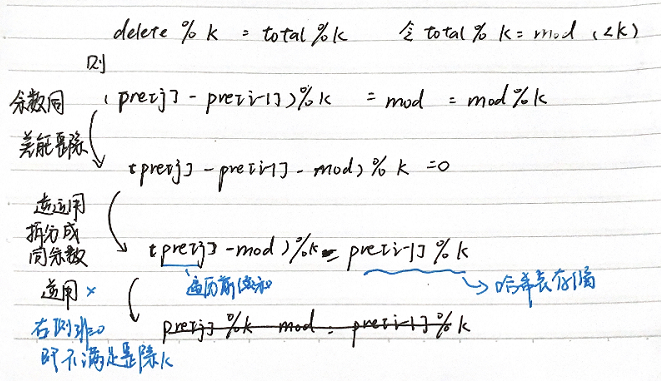 delete % k = total % k 令 total % k = mod (<k)
则
余数同 (pre[j] - pre[i-1]) % k = mod = mod % k
差能整除
(pre[j] - pre[i-1] - mod) % k = 0
逆运用
拆分成
同余数 (pre[j] - mod) % k = pre[i-1] % k
逆用 × 遍历前缀和 → 哈希表存储
右侧非0 pre[j] % k - mod = pre[i-1] % k
即不满足整除k